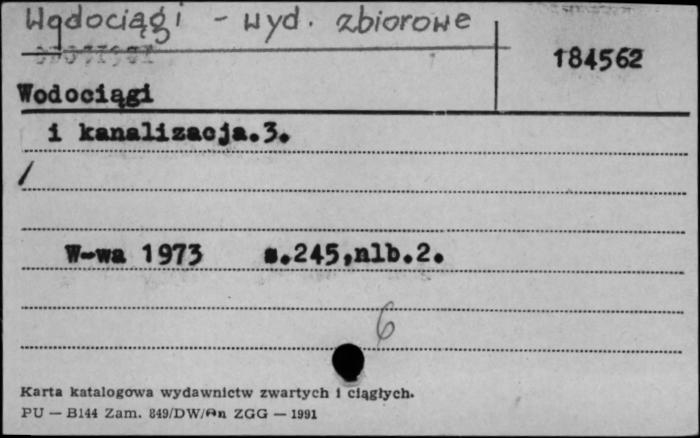 Wodociągi - wyd. zbiorowe
184562
Wodociągi
i kanalizacja.3.
W-wa 1973 s.245,nlb.2.
6
Karta katalogowa wydawnictw zwartych i ciągłych.
PU — B144 Zam. 849/DW/An ZGG — 1991